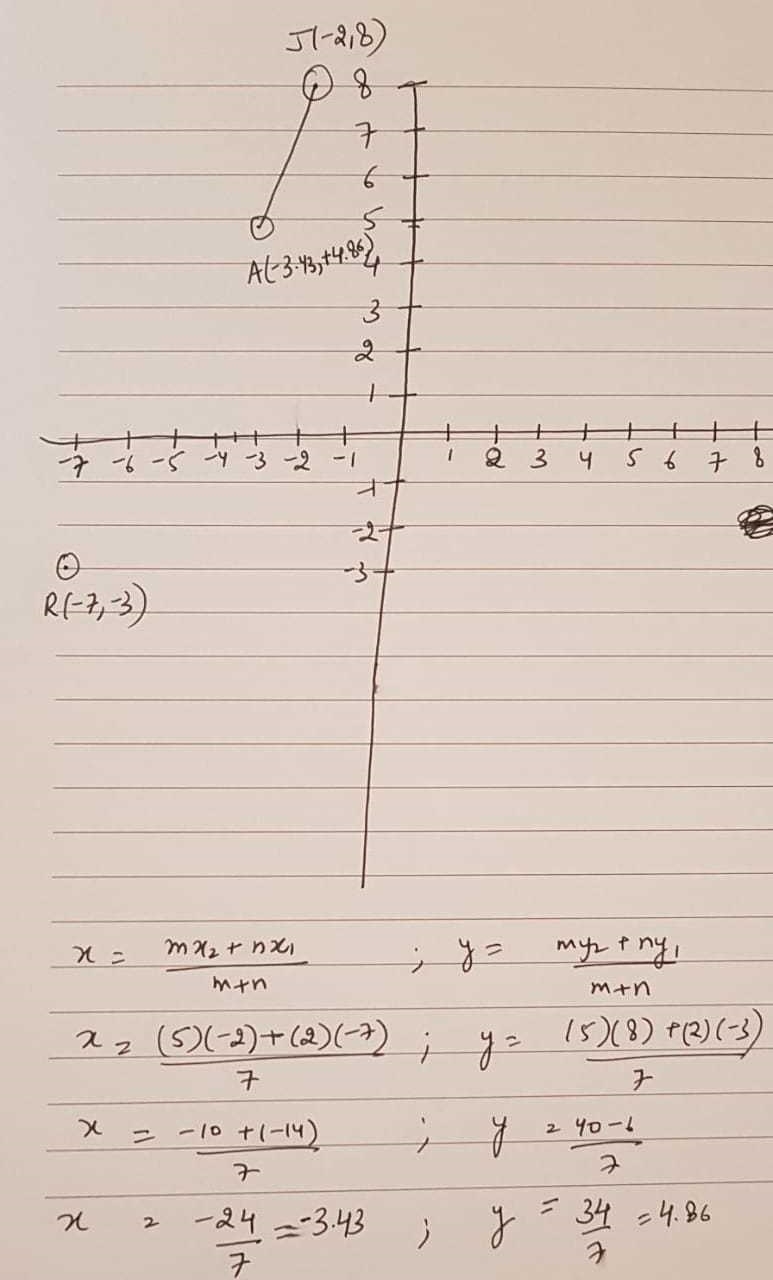 J(-2,8)
8
7
6
5
A(-3.43,+4.86)
4
3
2
1
-7 -6 -5 -4 -3 -2 -1 1 2 3 4 5 6 7 8
-1
-2
-3
R(-7,-3)
x = mx₂ + nx₁ / m+n ; y = my₂ + ny₁ / m+n
x = (5)(-2)+(2)(-7) / 7 ; y = (5)(8) + (2)(-3) / 7
x = -10 + (-14) / 7 ; y = 40-6 / 7
x = -24 / 7 = -3.43 ; y = 34 / 7 = 4.86